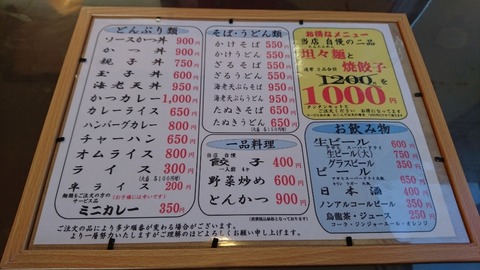 どんぶり類
ソースかつ丼 900円
かつ丼 900円
親子丼 750円
玉子丼 600円
海老天丼 950円
かつカレー 1,000円
カレーライス 650円
ハンバーグカレー 800円
チャーハン 650円
オムライス 800円
ライス 300円
半ライス 200円
麺類ご注文の方の
サービス品
ミニカレー 350円
そば・うどん類
かけそば 550円
かけうどん 550円
ざるそば 550円
ざるうどん 550円
海老天ぷらそば 950円
海老天ぷらうどん 950円
たぬきそば 650円
たぬきうどん 650円
(大盛 各100円増)
一品料理
当店 自慢
餃子 400円
一人前 4ヶ
野菜炒め 600円
とんかつ 900円
お得なメニュー
当店 自慢の二品
坦々麺と
焼餃子
1200円を
1000円
お飲み物
生ビール 600円
生ビール(大) 750円
グラスビール 350円
ビール 600円
日本酒 400円
ノンアルコールビール 350円
烏龍茶・ジュース 250円
コーラ・ジンジャーエール・オレンジ
ご注文の品により多少順番が変わる場合がございます。
より一層努力いたしますがご理解のほどよろしくお願い申し上げます。